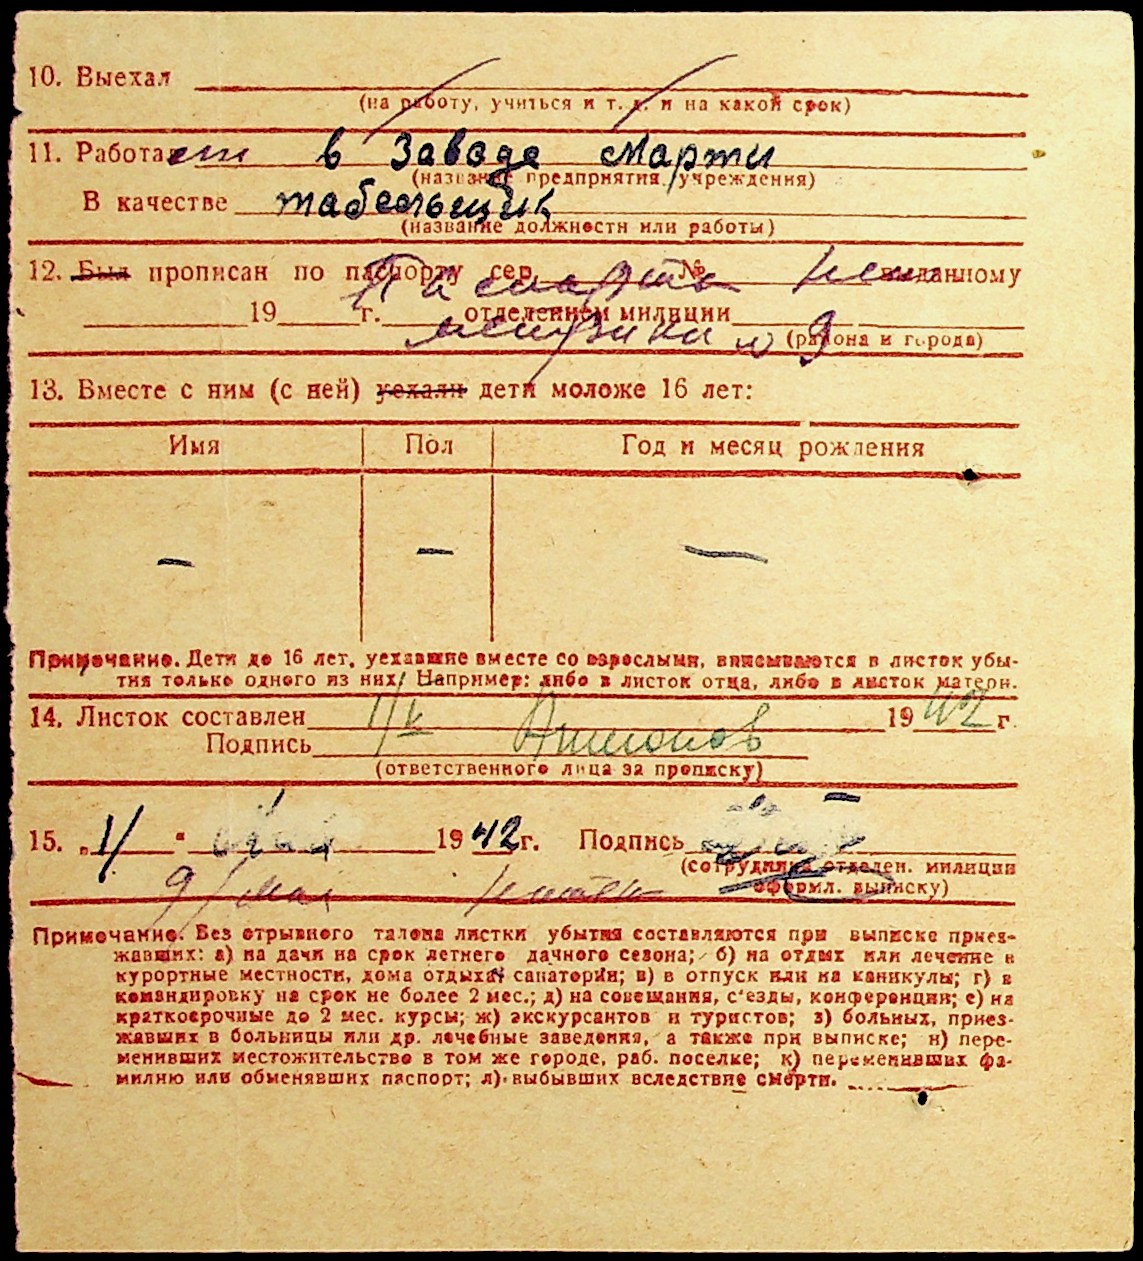 10. Выехал
(на работу, учиться и т. д. и на какой срок)
11. Работает в Заводе Марти
(название предприятия, учреждения)
В качестве табельщик
(название должности или работы)
12. Был прописан по паспорту сер. № выданному
Паспорта нет
19 г. отделением милиции
метрика
(района и города)
13. Вместе с ним (с ней) уехали дети моложе 16 лет:
Имя Пол Год и месяц рождения
— — —
Примечание. Дети до 16 лет, уехавшие вместе со взрослыми, вписываются в листок убы-
тия только одного из них. Например: либо в листок отца, либо в листок матери.
14. Листок составлен 1942 г.
Подпись
(ответственного лица за прописку)
15. „1/" 1942 г. Подпись
(сотрудника отделен. милиции
оформл. выписку)
9/ мая
Примечание. Без отрывного талона листки убытия составляются при выписке приез-
жавших: а) на дачи на срок летнего дачного сезона; б) на отдых или лечение в
курортные местности, дома отдыха и санатории; в) в отпуск или на каникулы; г) в
командировку на срок не более 2 мес.; д) на совещания, с'езды, конференции; е) на
краткосрочные до 2 мес. курсы; ж) экскурсантов и туристов; з) больных, приез-
жавших в больницы или др. лечебные заведения, а также при выписке; и) пере-
менивших местожительство в том же городе, раб. поселке; к) переменивших фа-
милию или обменявших паспорт; л) выбывших вследствие смерти.